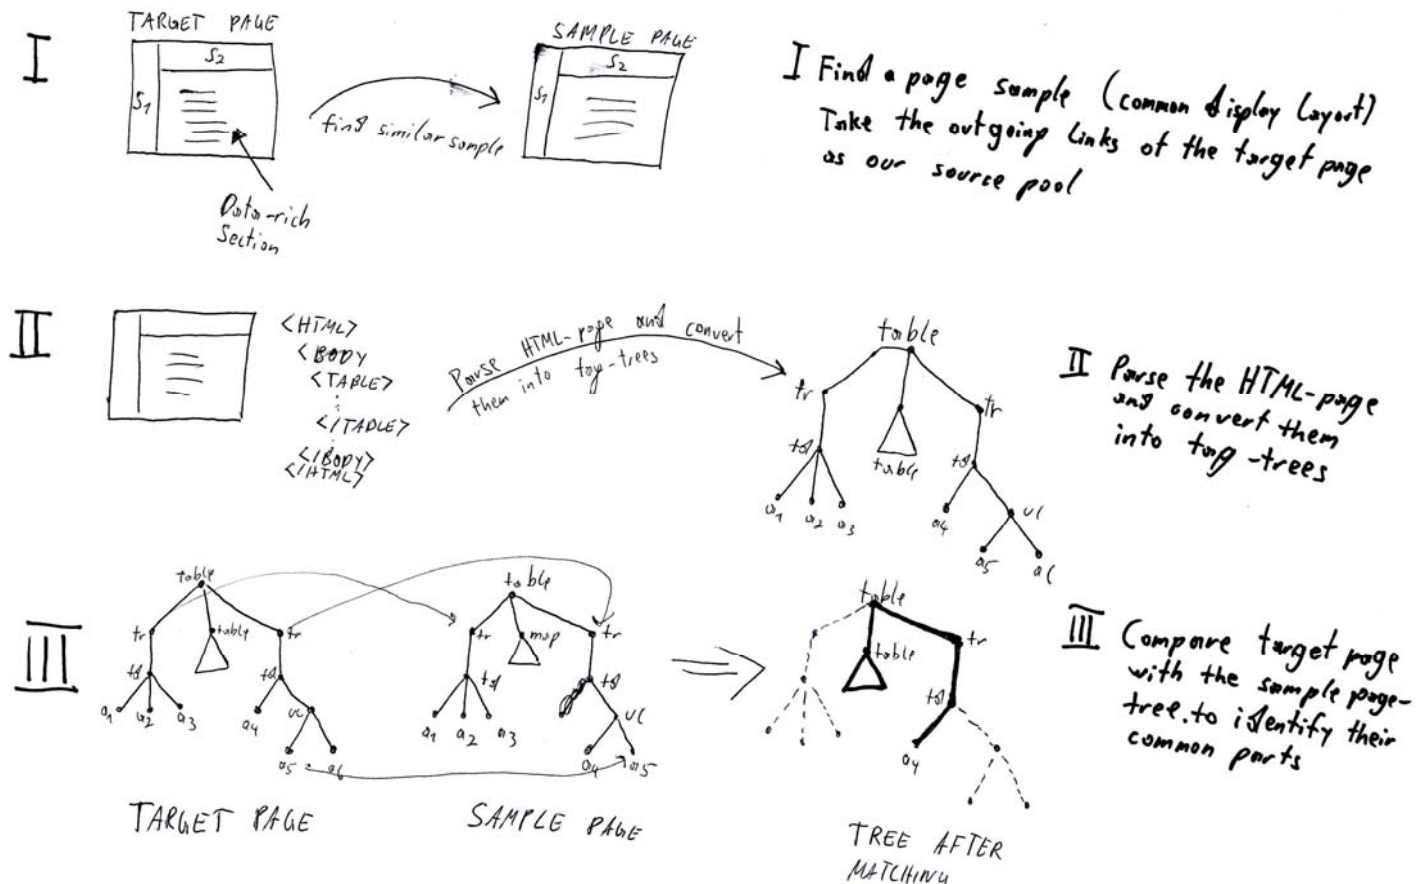 I
TARGET PAGE
S2
S1
Data-rich
Section
find similar sample
SAMPLE PAGE
S2
S1
I Find a page sample (common display layout)
Take the outgoing links of the target page
as our source pool
II
<HTML>
<BODY
<TABLE>
</TABLE>
</BODY>
</HTML>
Parse HTML-page and convert
them into tag-trees
table
tr
tr
td
table
td
a1 a2 a3
a4
ul
a5
a6
II Parse the HTML-page
and convert them
into tag-trees
III
table
tr
table
tr
td
td
a1 a2 a3
a4
ul
a5 a6
TARGET PAGE
table
tr
map
tr
td
td
a1 a2 a3
ul
a4 a5
SAMPLE PAGE
table
table
tr
td
a4
TREE AFTER
MATCHING
III Compare target page
with the sample page-
tree. to identify their
common parts